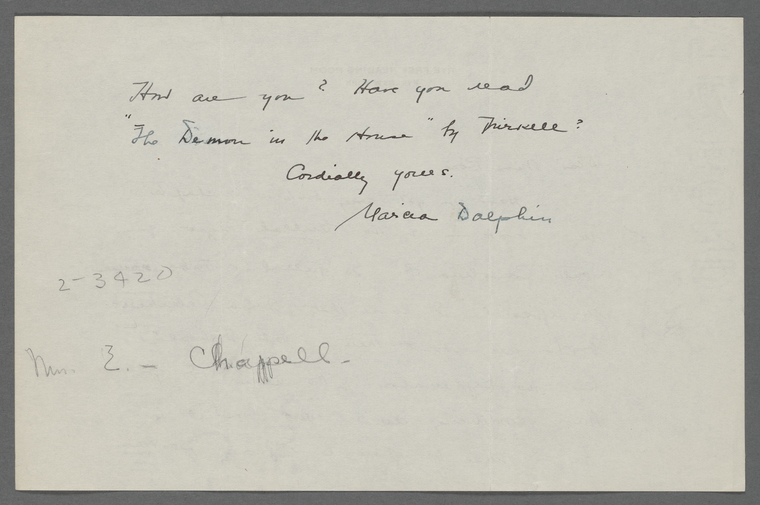 How are you? Have you read
"The Demon in the House" by Thirkell?
Cordially yours.
Marcia Dalphin
2-3420
E. - Chappell.